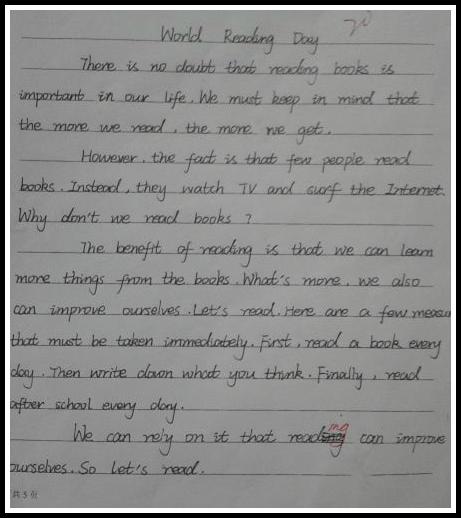 World Reading Day 20
There is no doubt that reading books is
important in our life. We must keep in mind that
the more we read, the more we get.
However, the fact is that few people read
books. Instead, they watch TV and surf the Internet.
Why don't we read books?
The benefit of reading is that we can learn
more things from the books. What's more, we also
can improve ourselves. Let's read. Here are a few measu
that must be taken immediately. First, read a book every
day. Then write down what you think. Finally, read
after school every day.
We can rely on it that reading can improve
ourselves. So let's read.
共 5 页